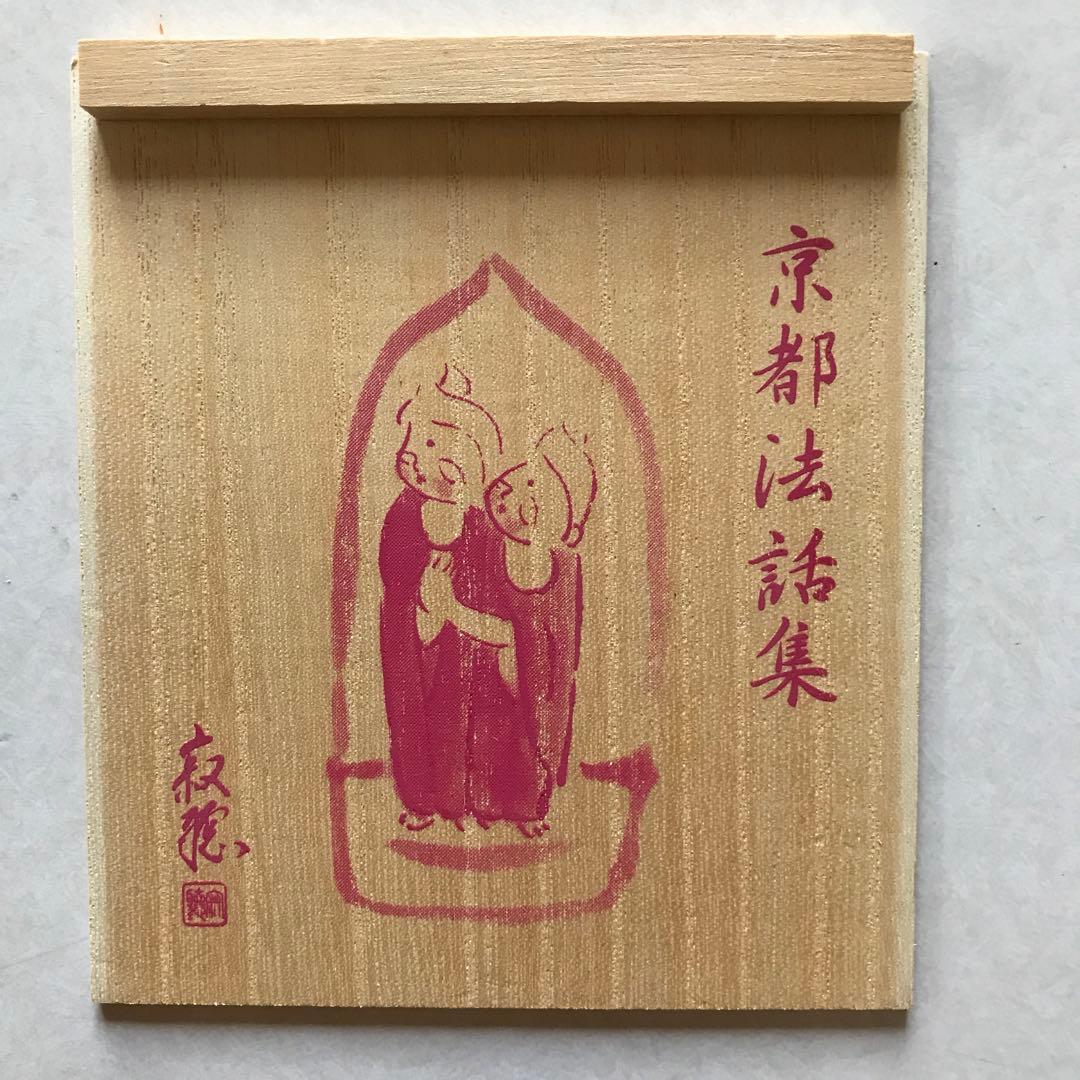 京都法話集
寂聴